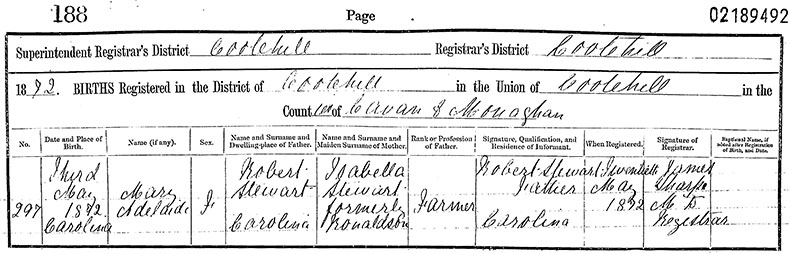 188 Page 02189492
Superintendent Registrar's District Cootehill Registrar's District Cootehill
1872. BIRTHS Registered in the District of Cootehill in the Union of Cootehill in the
Counties of Cavan & Monaghan
No. Date and Place of Birth. Name (if any). Sex. Name and Surname and Dwelling-place of Father. Name and Surname and Maiden Surname of Mother. Rank or Profession of Father. Signature, Qualification, and Residence of Informant. When Registered. Signature of Registrar. Baptismal Name, if added after Registration of Birth, and Date.
297
Third
May
1872
Carolina
Mary
Adelaide
F
Robert
Stewart
Carolina
Isabella
Stewart
formerly
Ronaldson
Farmer
Robert Stewart
Father
Carolina
Twentieth
May
1872
James
Sharpe
M D
Registrar